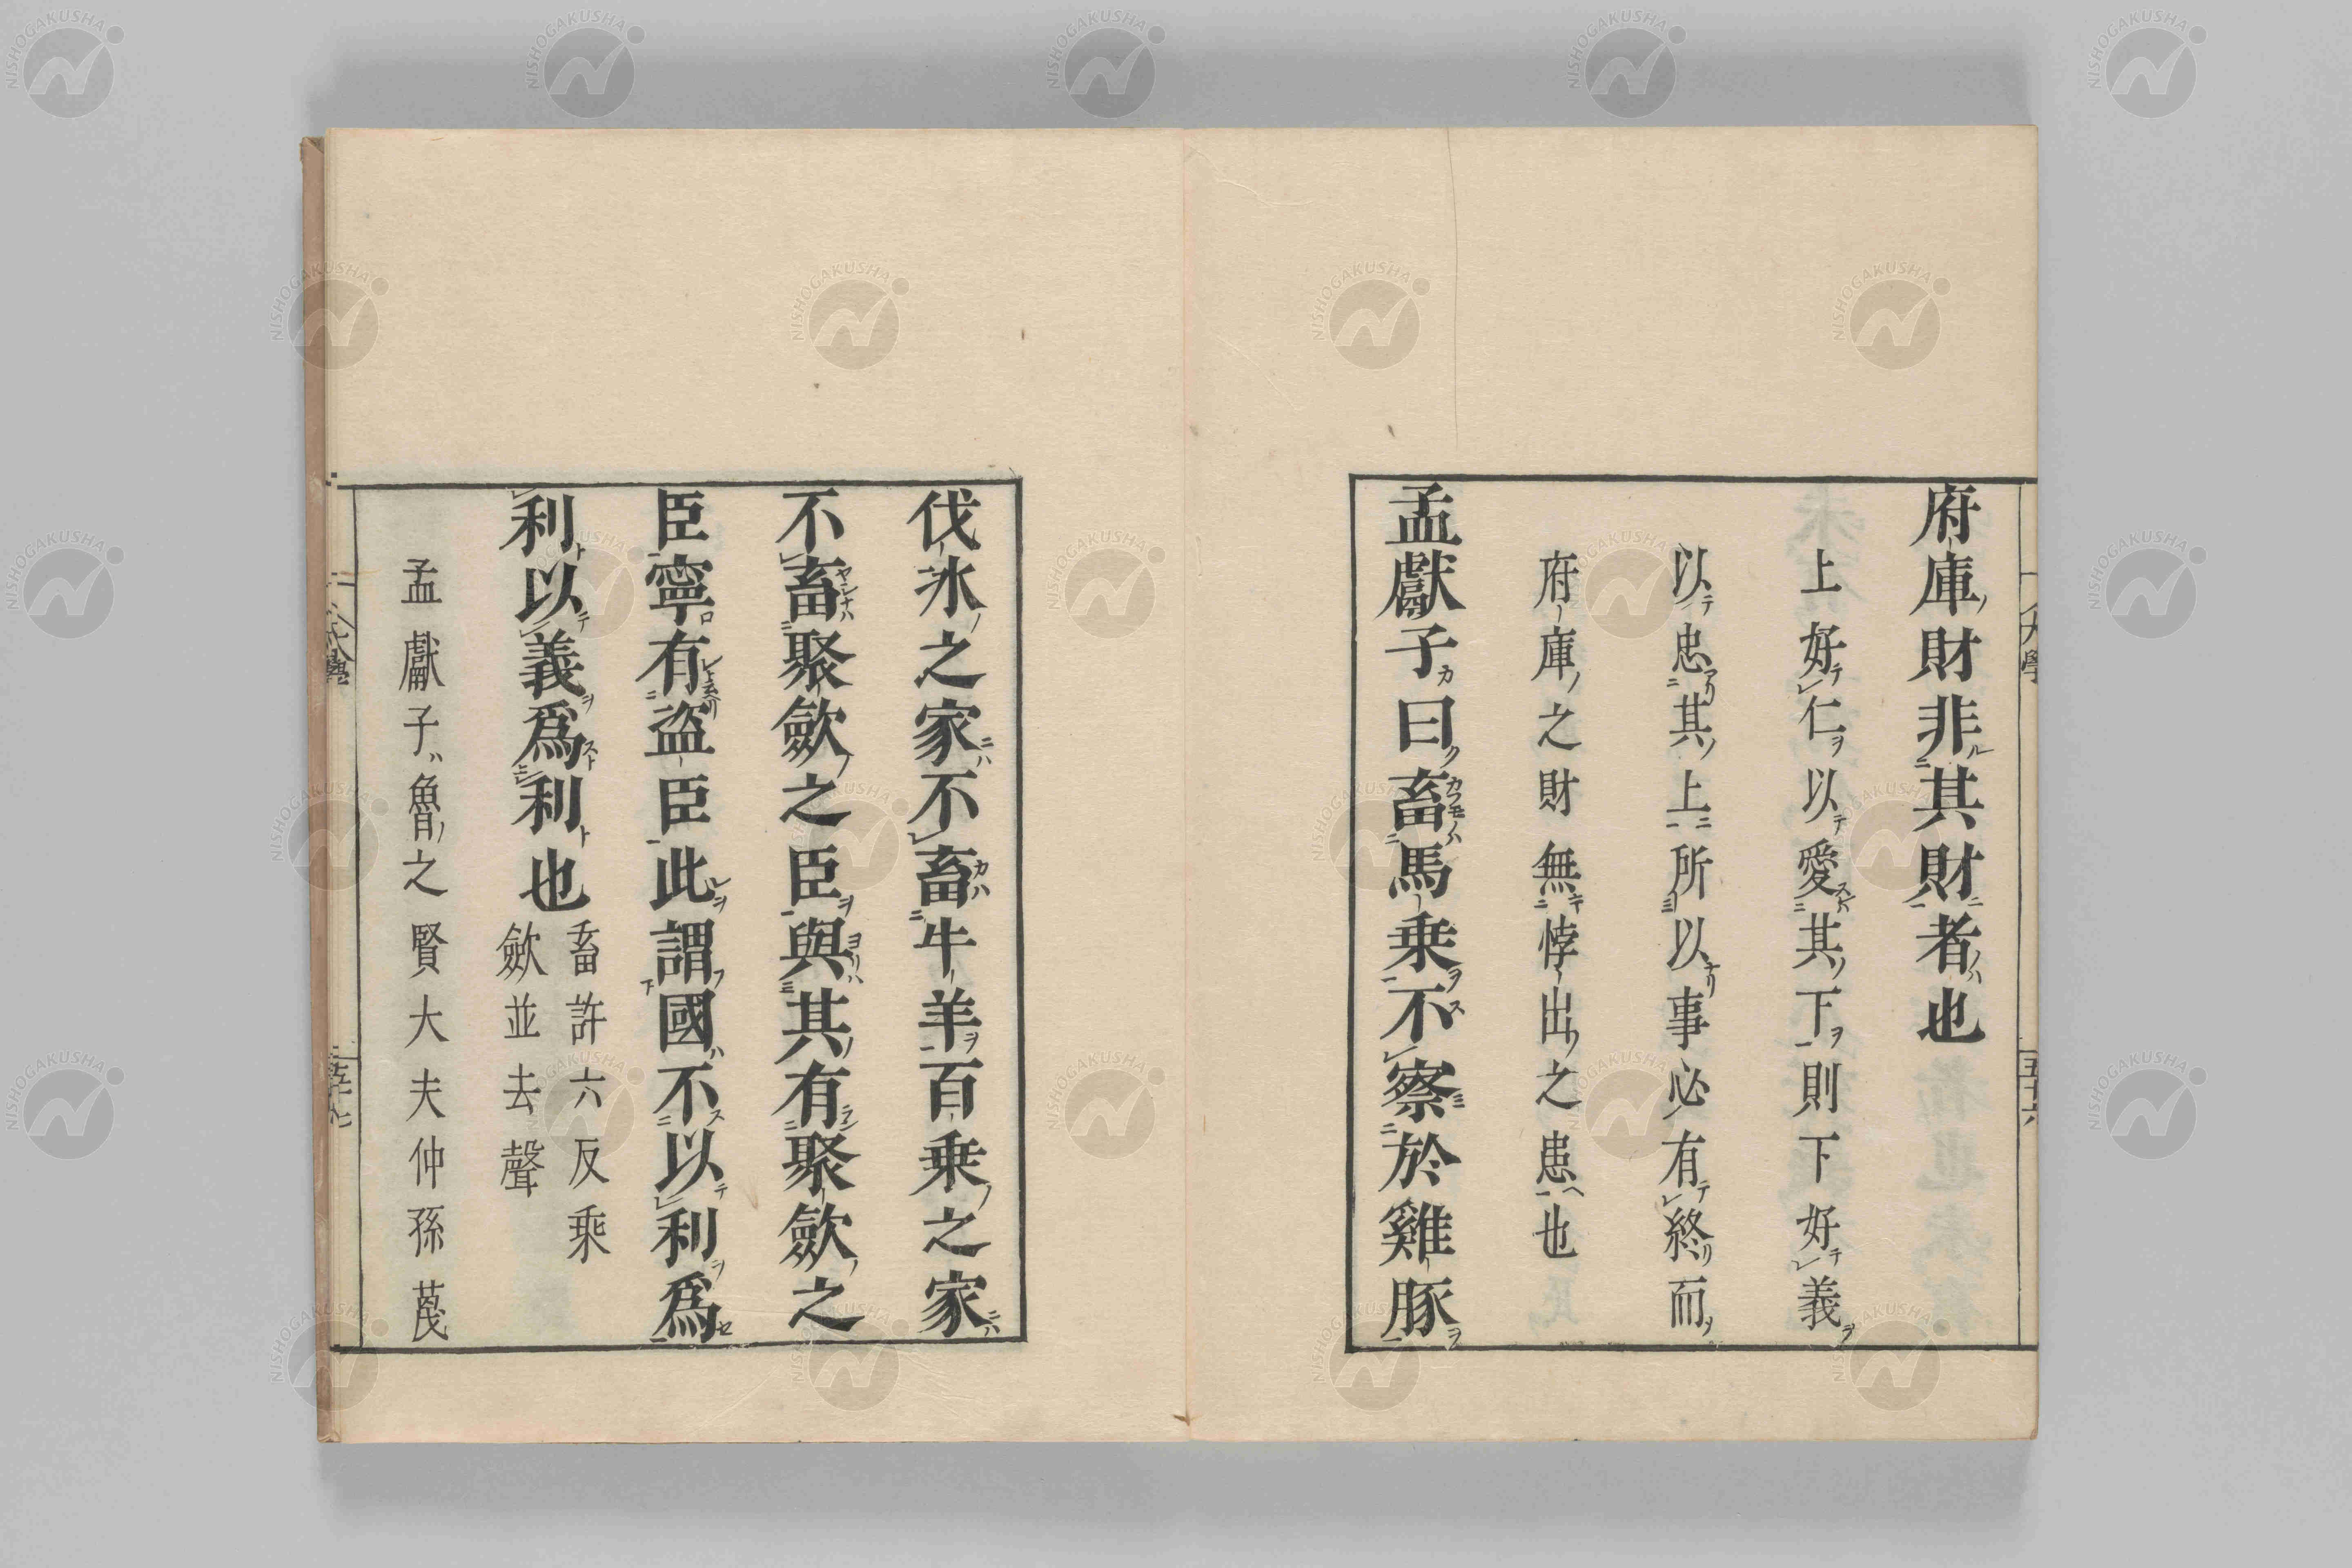 府庫財非其財者也
上好仁以愛其下則下好義
以忠其上所以事必有終而
府庫之財無悖出之患也
孟獻子曰畜馬乗不察於雞豚
伐氷之家不畜牛羊百乗之家
不畜聚斂之臣與其有聚斂之
臣寧有盗臣此謂國不以利爲
利以義爲利也
畜許六反乗
斂並去聲
孟獻子魯之賢大夫仲孫蔑
大學
五十六
NISHOGAKUSHA